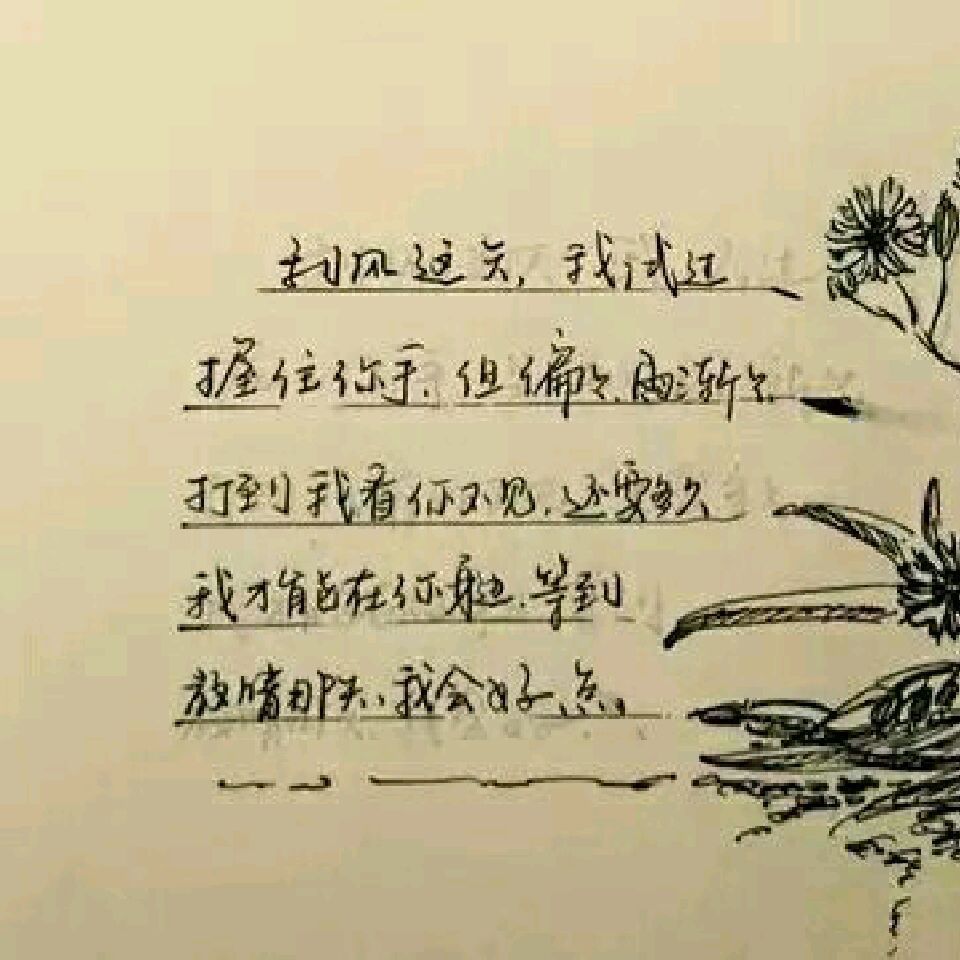 刮风这天,我试过
握住你手,但偏々,雨渐々,
打到我看你不见,还要多久
我才能在你身边,等到
放晴那天,我会好点。